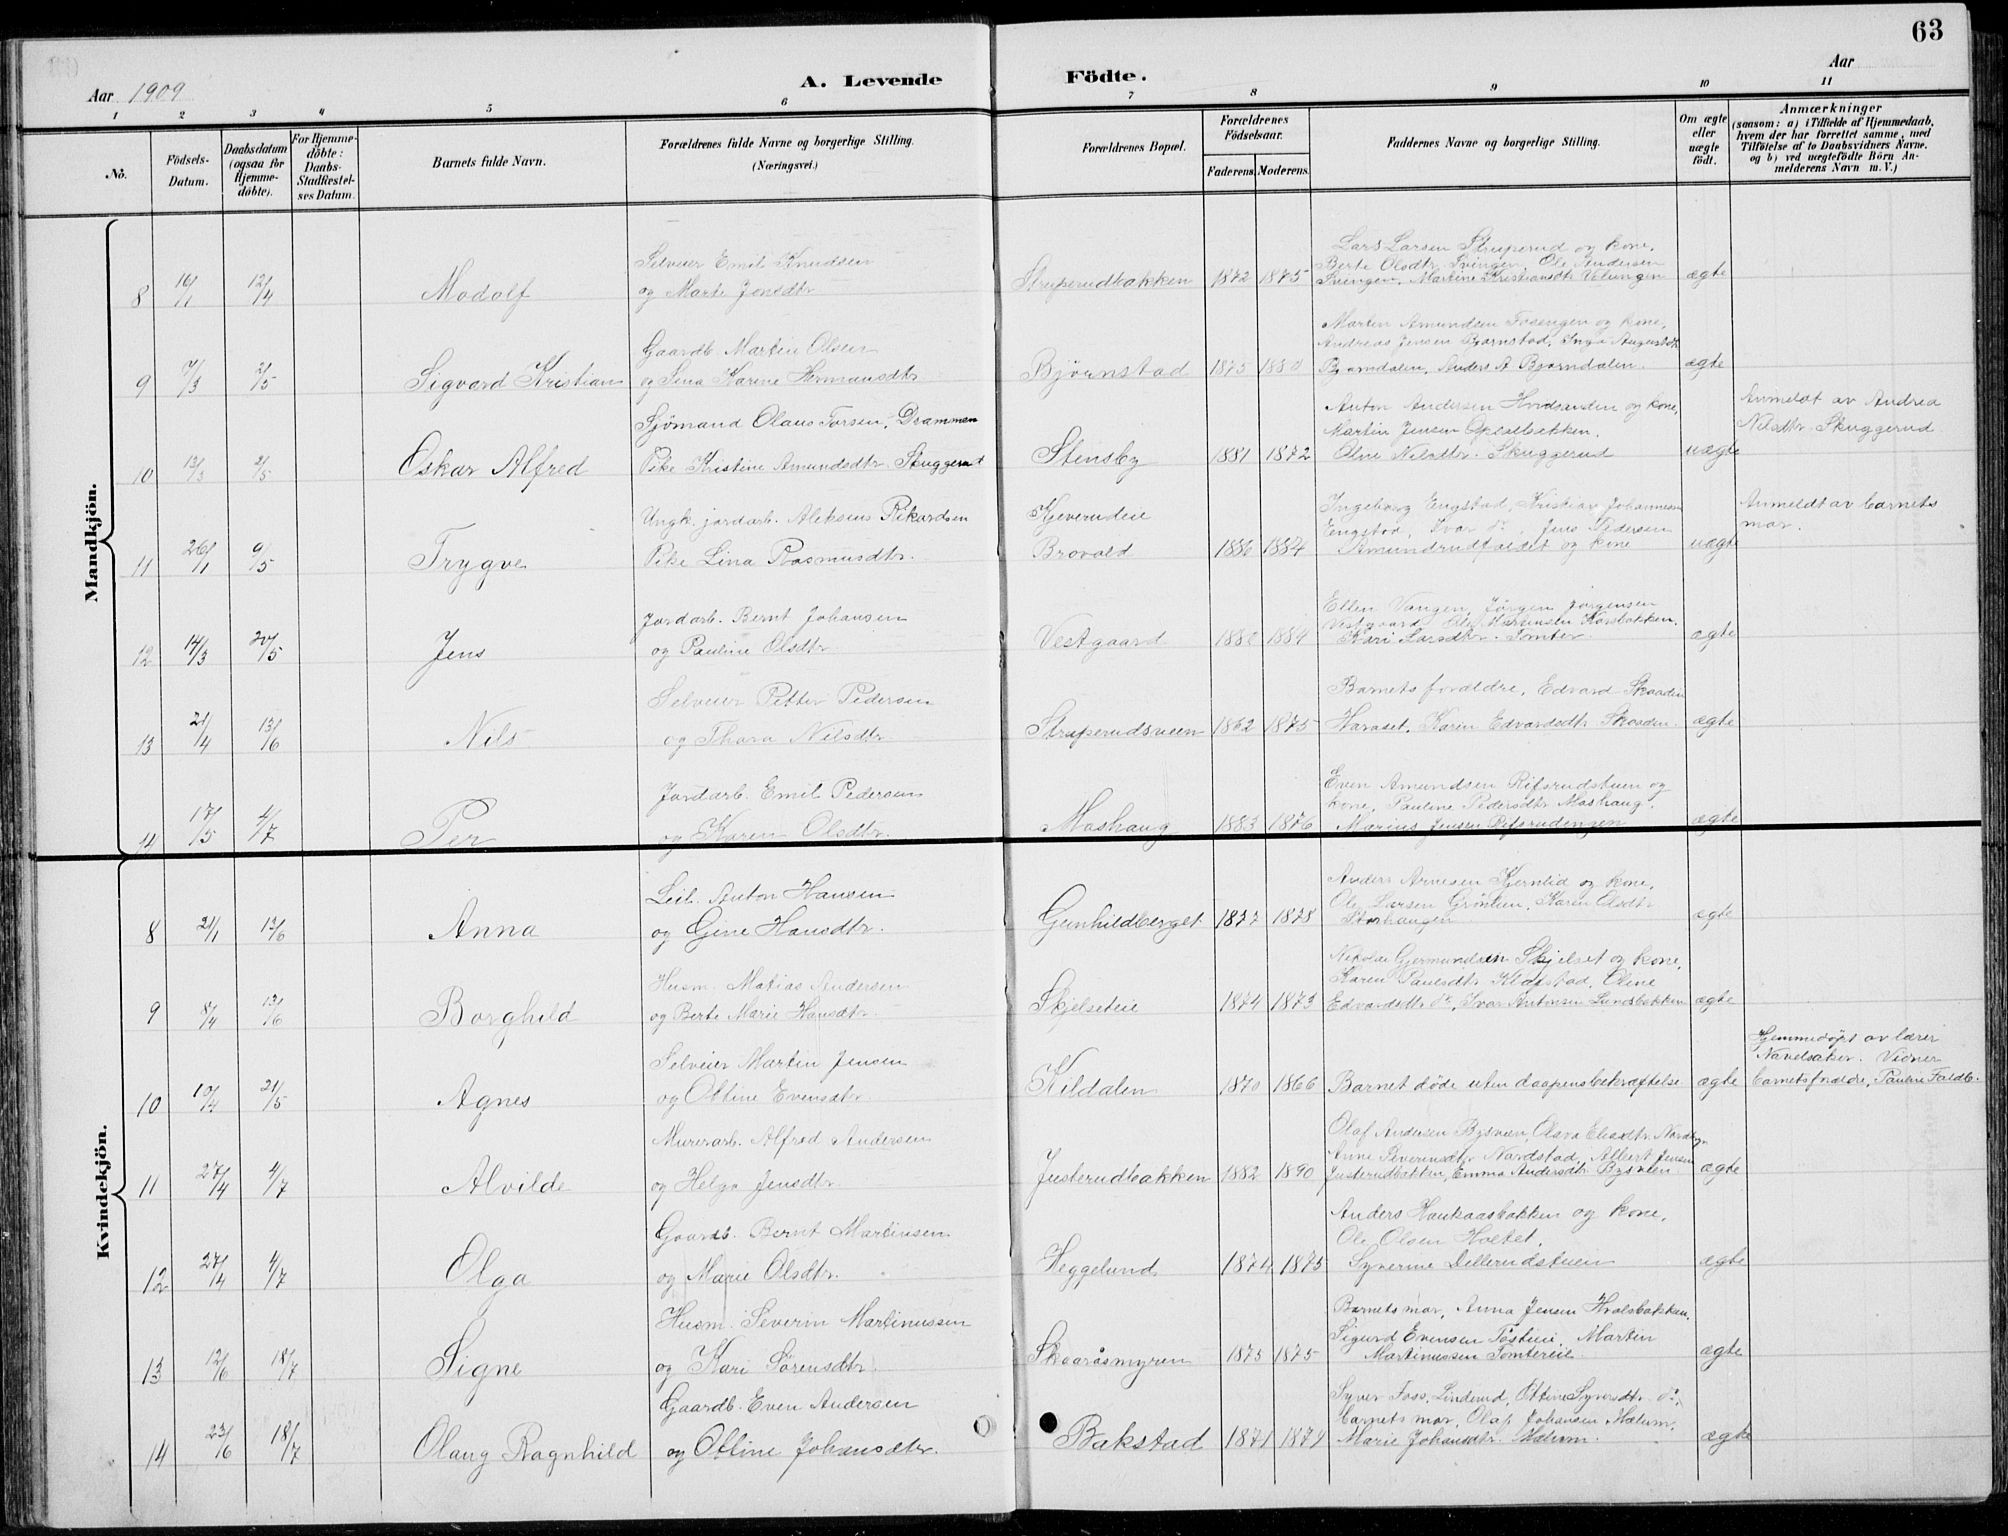 63
Aar 1909
A. Levende Födte.
Aar
1 2 3 4 5 6 7 8 9 10 11
No.
Födsels-Datum.
Daabsdatum (ogsaa for Hjemme-döbte).
For Hjemme-döbte: Daabs-Stadfæstel-ses Datum.
Barnets fulde Navn.
Forældrenes fulde Navne og borgerlige Stilling. (Næringsvei.)
Forældrenes Bopæl.
Forældrenes Födselsaar.
Faderens. Moderens.
Faddernes Navne og borgerlige Stilling.
Om ægte eller uægte födt.
Anmærkninger (saasom: a) i Tilfælde af Hjemmedaab, hvem der har forrettet samme, med Tilföielse af to Daabsvidners Navne, og b) ved uægtefödte Börn An-melderens Navn m. V.)
Mandkjön.
Selveier Emil Knudsen
og Marte Jensdtr
8 16/1 12/4 Modolf
Struperudbakken 1872 1875
Lars Larsen Struperud og kone,
Berte Olsdtr. Svingen, Ole Andersen
Svingen, Martine Kristiansdtr Velungen
ægte
Gaardb. Martin Olsen
9 7/3 2/5 Sigvard Kristian og Sina Karine Hermansdtr
Bjørnstad 1875 1880
Martin Amundsen Fosengen og kone,
Andreas Jensen Bjørnstad, Inga Augustdtr
Bjørndalen, Anders A. Bjørndalen.
ægte
Sjømand Olaus Torsen, Drammen
10 13/3 2/5 Oskar Alfred Pike Kristine Amundsdtr. Skuggerud
Stensby 1881 1872
Anton Andersen Hvidsanden og kone,
Martin Jensen
Oline Nilsdtr. Skuggerud
uægte
Anmeldt av Andrea
Nilsdtr. Skuggerud
Ungk. jordarb. Aleksius Rikardsen Kjeverudeie
11 26/1 9/5 Trygve Pike Lina Rasmusdtr. Brovold 1886 1884
Ingeborg Engstad, Kristian Johannesen
Engstad, Ivar do, Jens Pedersen
Amundrud og kone
uægte
Anmeldt av barnets
mor.
Jordarb. Bernt Johansen
12 14/3 20/5 Jens og Pauline Olsdtr Vestgaard 1882 1884
Ellen Vangen, Jørgen Jørgensen
Vestgaard, Korsbakken,
Kari Larsdtr. Tomter.
ægte
Selveier Petter Pedersen
13 21/4 13/6 Nils og Thora Nilsdtr Struperudsveen 1862 1875
Barnets forældre, Edvard Skaaden
Haraset, Karen Edvardsdtr Skaaden.
ægte
Jordarb. Emil Pedersen
14 17/5 4/7 Per og Karen Olsdtr. Moshaug 1883 1876
Even Amundsen Rifsrudstuen og
kone, Pauline Pedersdtr Moshaug,
Marius Jensen Rifsrudengen
ægte
Kvindekjön.
Leil. Anton Hansen
8 21/1 13/6 Anna og Gine Hansdtr. Gunhildberget 1877 1878
Anders Arnesen Kjernlid og kone,
Ole Larsen Grönlien, Karen Olsdtr
Storhaugen
ægte
Husm. Matias Andersen
9 8/4 13/6 Borghild og Berte Marie Hansdtr. Skjelseteie 1874 1873
Nikolai Gjermundsen Skjelset og kone,
Karen Paulsdtr. Klapstad, Oline
Edvardsdtr do, Ivar Antonsen Lundsbakken
ægte
Selveier Martin Jensen
10 10/4 21/5 Agnes og Ottine Evensdtr. Kildalen 1870 1866
Barnet döde uten daapensbekræftelse
ægte
Hjemmedøpt av lærer
Navelsaker. Vidner
barnets forældre, Pauline Faldb.
Murerarb. Alfred Andersen
11 27/4 4/7 Alvilde og Helga Jensdtr. Justerudbakken 1882 1890
Olaf Andersen Bysveen, Olava Eliasdtr. Nordby,
Anne Severinsdtr Nordstad, Albert Jensen
Justerudbakken, Emma Andersdtr. Bysveen
ægte
Gaardb. Bernt Martinsen
12 27/4 4/7 Olga og Marie Olsdtr. Heggelund 1874 1875
Anders Haukaasbakken og kone,
Ole Olsen Holtet,
Syverine Dellerudstuen
ægte
Husm. Severin Martinussen
13 12/6 18/7 Signe og Kari Sørensdtr. Skaaråsmyren 1875 1875
Barnets mor, Anna Jensen Hvalsbakken,
Sigurd Evensen Töstieie, Martin
Martinussen Tomtereie.
ægte
Gaardb. Even Andersen
14 23/6 18/7 Olaug Ragnhild og Ottine Johansdtr. Bakstad 1871 1879
Syver Foss, Linderud, Ottine Syversdtr. do,
barnets mor, Olaf Johansen Mælum,
Marie Johansdtr. Mælum.
ægte